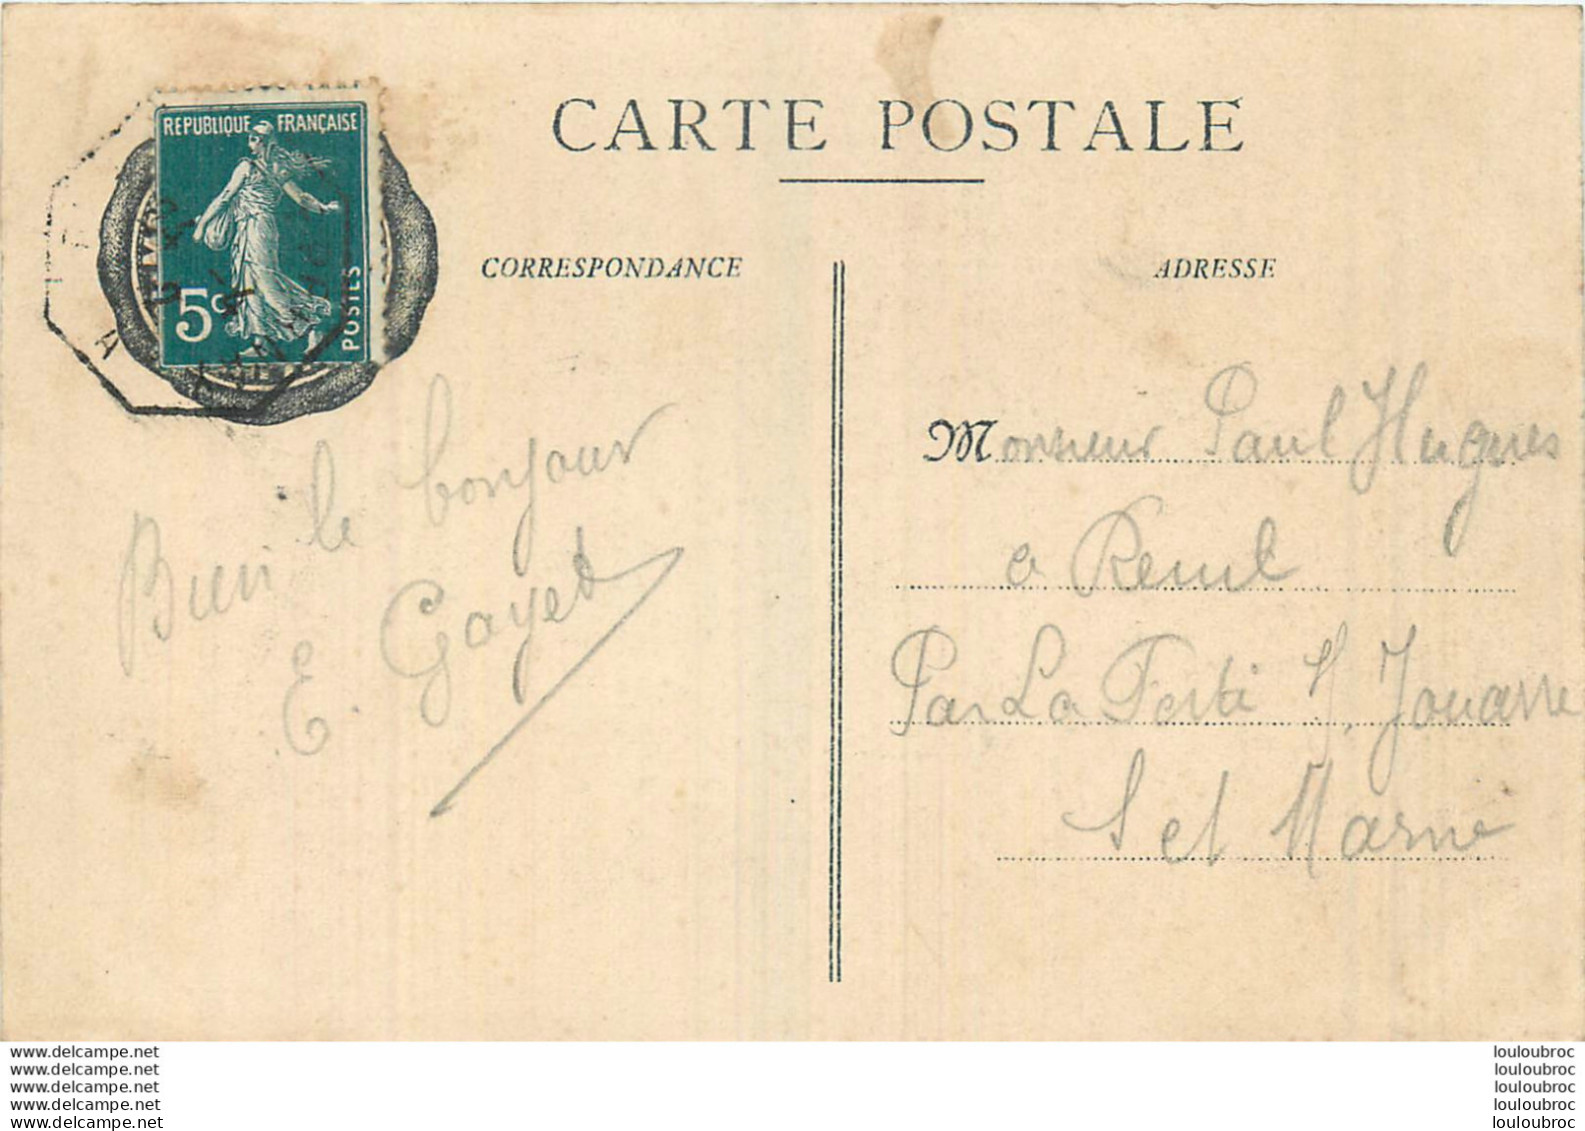 CARTE POSTALE
REPUBLIQUE FRANÇAISE
5c
POSTES
CORRESPONDANCE
ADRESSE
Bien le bonjour
E. Gayet
Monsieur Paul Hugues
a Reuil
Par La Ferté s/ Jouarre
S et Marne
www.delcampe.net
www.delcampe.net
www.delcampe.net
www.delcampe.net
www.delcampe.net
louloubroc
louloubroc
louloubroc
louloubroc
louloubroc